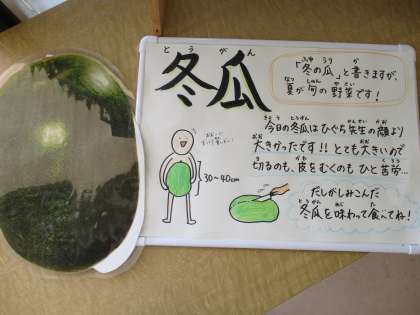 冬瓜
とうがん
「冬の瓜」と書きますが、
ふゆ うり か
夏が旬の野菜です！
なつ しゅん やさい
今日の冬瓜はひぐち先生の顔より
きょう とうがん せんせい かお
大きかったです!!とても大きいので
おお おお
切るのも、皮をむくのもひと苦労…
き かわ くろう
30〜40cm
だしがしみこんだ
冬瓜を味わって食べてね！
とうがん あじ た